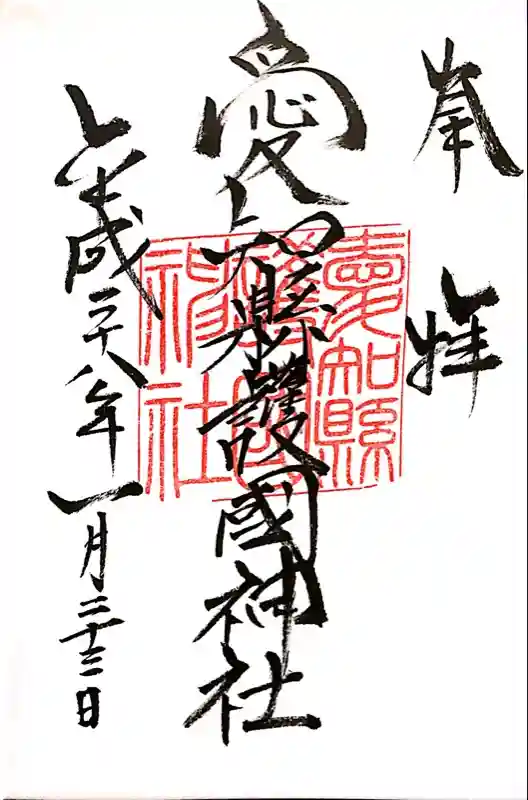 奉拝
愛知縣護國神社
平成二十八年一月二十三日
愛知縣
護國
神社